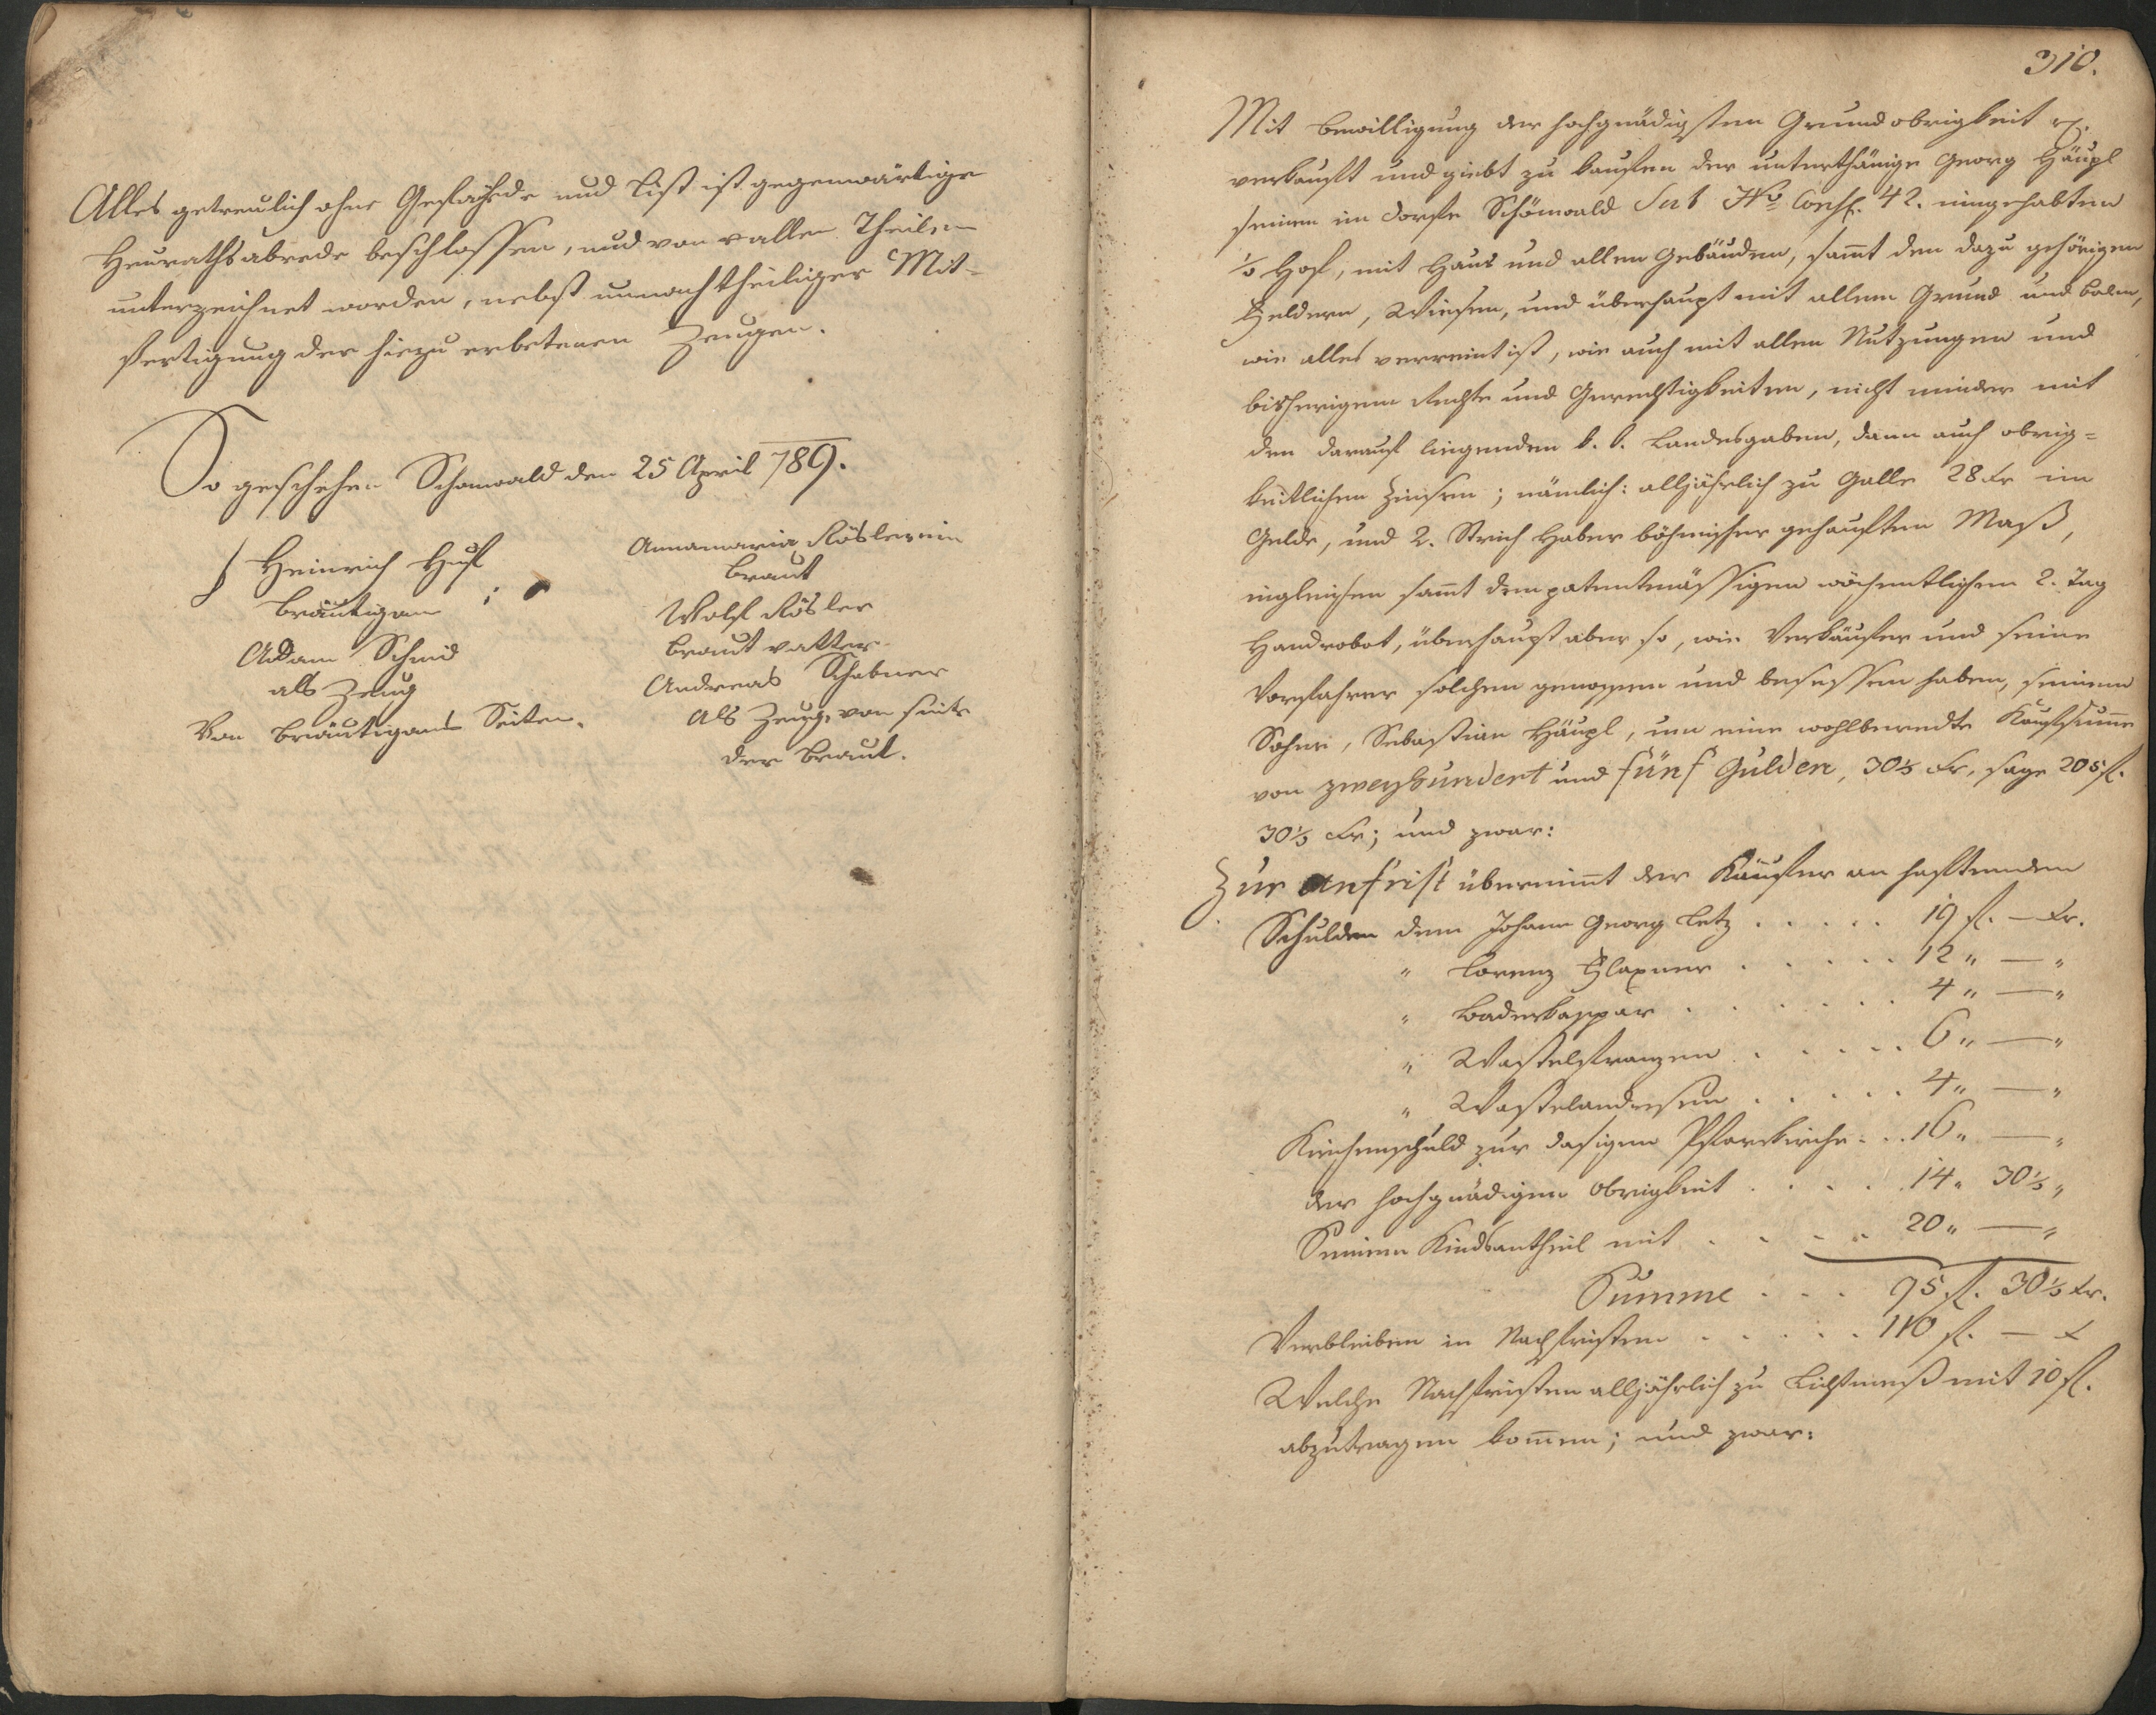 Alles getreulich ohne Gefährde und List ist gegenwärtige
Heurathsabrede beschlossen, und von allen Theilen
unterzeichnet worden, nebst unnachtheiliger Mit-
fertigung der hiezu erbetenen Zeugen.
So geschehen Schonwald den 25 April 789.
Heinrich Huf
Bräutigam
Adam Schmid
als Zeug
Von Bräutigams Seiten.
Annamaria Röslerin
Braut
Wolf Rösler
Braut vatter
Andreas Schabner
Als Zeug, von seite
der Braut.
310.
Mit Bewilligung der hochgnädigsten Grundobrigkeit rc.
verkauft und giebt zu kaufen der unterthänige Georg Häupl
seinen im Dorfe Schönwald Sub No Consc. 42. inngehabten
1/8 Hof, mit Haus und allen Gebäuden, samt den dazu gehörigen
Feldern, Wiesen, und überhaupt mit allem Grund und Boden,
wie alles verreint ist, wie auch mit allen Nutzungen und
bisherigem Rechte und Gerechtigkeiten, nicht minder mit
den darauf liegenden k. k. Landesgaben, dann auch obrig-
keitlichen Zinsen; nämlich: alljährlich zu Galle 28 Kr im
Gelde, und 2. Strich Haber böhmischer gehauften Maß,
ingleichen samt dem patentmässigen wöchentlichen 2. Tag
Handrobot, überhaupt aber so, wie Verkäufer und seine
Vorfahrer solchen genossen und besessen haben, seinem
Sohne, Sebastian Häupl, um eine wohlberedte Kaufsumme
von zweyhundert und fünf Gulden, 30 1/2 Kr, sage 205 fl.
30 1/2 Kr; und zwar:
Zur anfrist übernimmt der Käufer an haftenden
Schulden dem Johann Georg Letz . . . . . 19 fl. — Kr.
" Lorenz Flaxner . . . . . 12 " — "
" Baderkaspar . . . . . . 4 " — "
" Wastelfranzen . . . . . 6 " — "
" Wastelandresen . . . . . 4 " — "
Kirchenschuld zur dasigen Pfarrkirche . . . 16 " — "
der hochgnädigen Obrigkeit . . . . 14 " 30 1/2 "
Seinen Kindsantheil mit . . . . 20 " — "
Summe . . . 95 fl. 30 1/2 Kr.
Verbleiben in Nachfristen . . . . . 110 fl. — x
Welche Nachfristen alljährlich zu Lichtmeß mit 10 fl.
abzutragen kommen; und zwar: